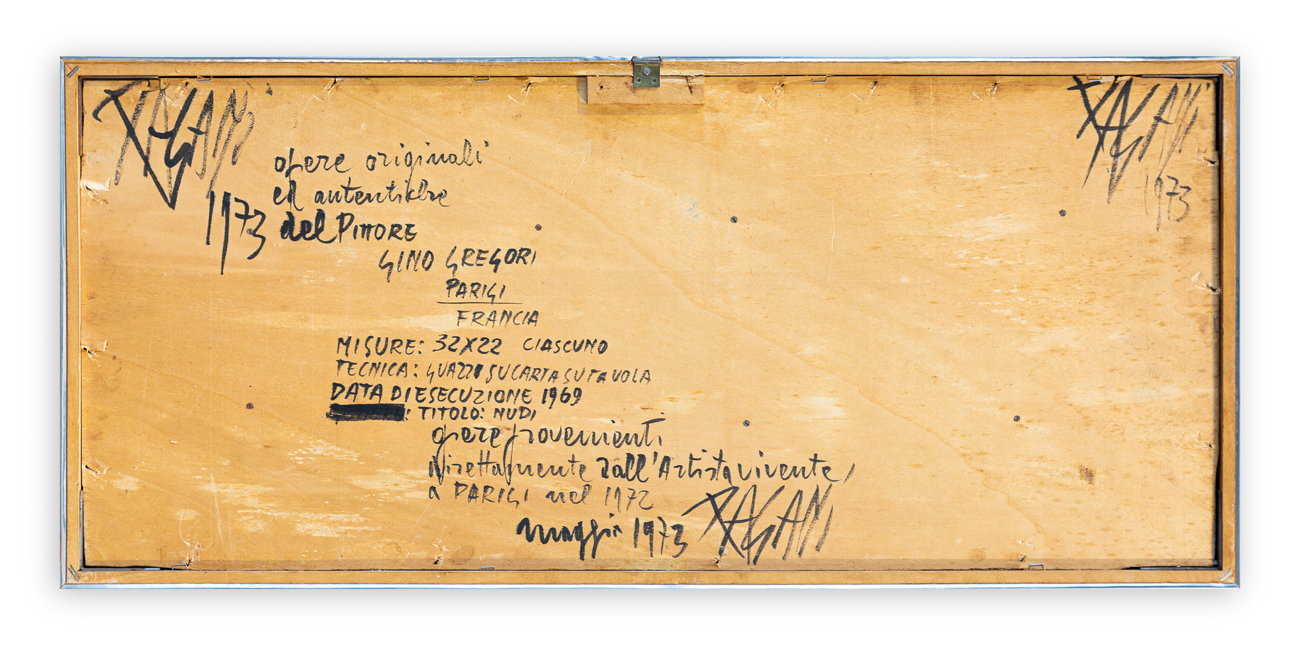 PAGANI
1973
PAGANI
1973
opere originali
ed autentiche
del PITTORE
GINO GREGORI
PARIGI
FRANCIA
MISURE: 32X22 CIASCUNO
TECNICA: GUAZZO SU CARTA SU TAVOLA
DATA DI ESECUZIONE 1969
: TITOLO: NUDI
opere provenienti
direttamente dall'Artista vivente,
a PARIGI nel 1972
maggio 1973 PAGANI